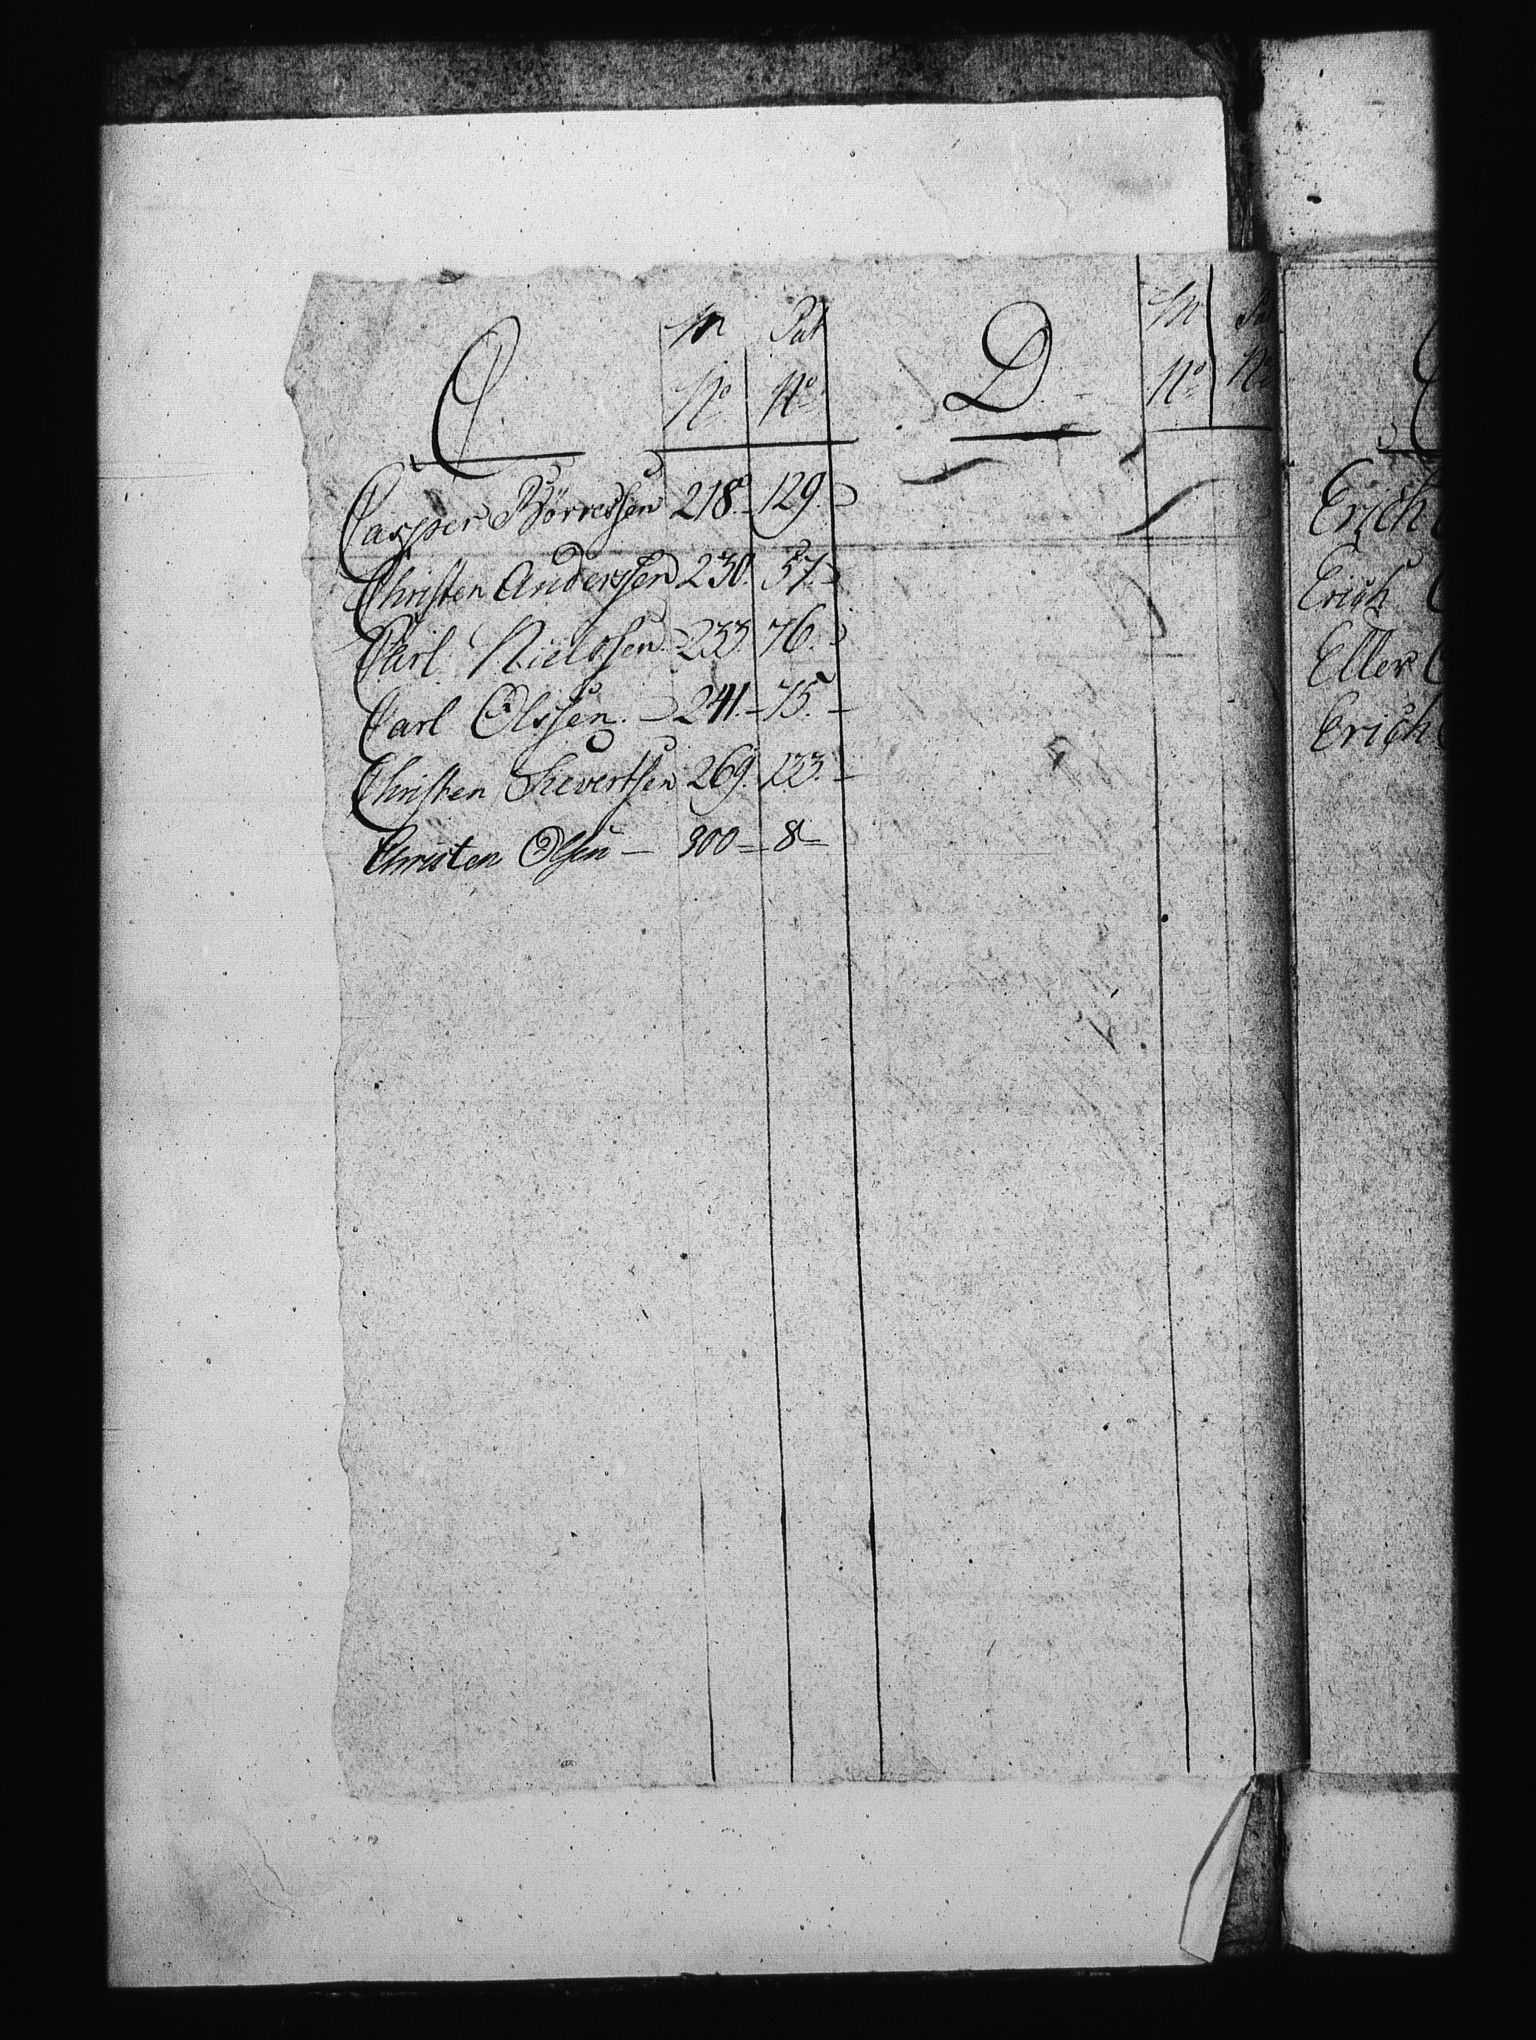 C
In Pat
No No
Casper Börressen 218. 129.
Christen Anderssen 230. 57.
Carl Nielssen. 233. 76.
Carl Olssen. 241. 75.
Christen Sievertsen 269. 133.
Christen Olsen 300 8
D.
In Pat
No No
Erich
Erich
Eller
Erich